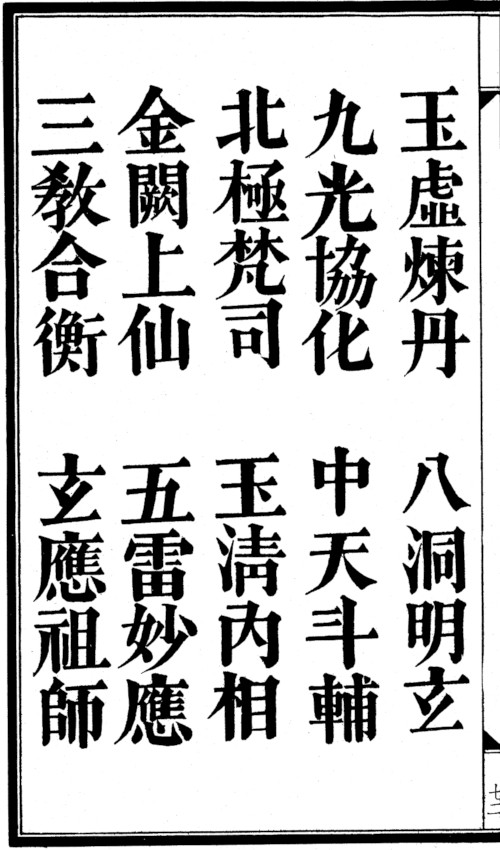 玉虛煉丹　八洞明玄
九光協化　中天斗輔
北極梵司　玉淸內相
金闕上仙　五雷妙應
三教合衡　玄應祖師